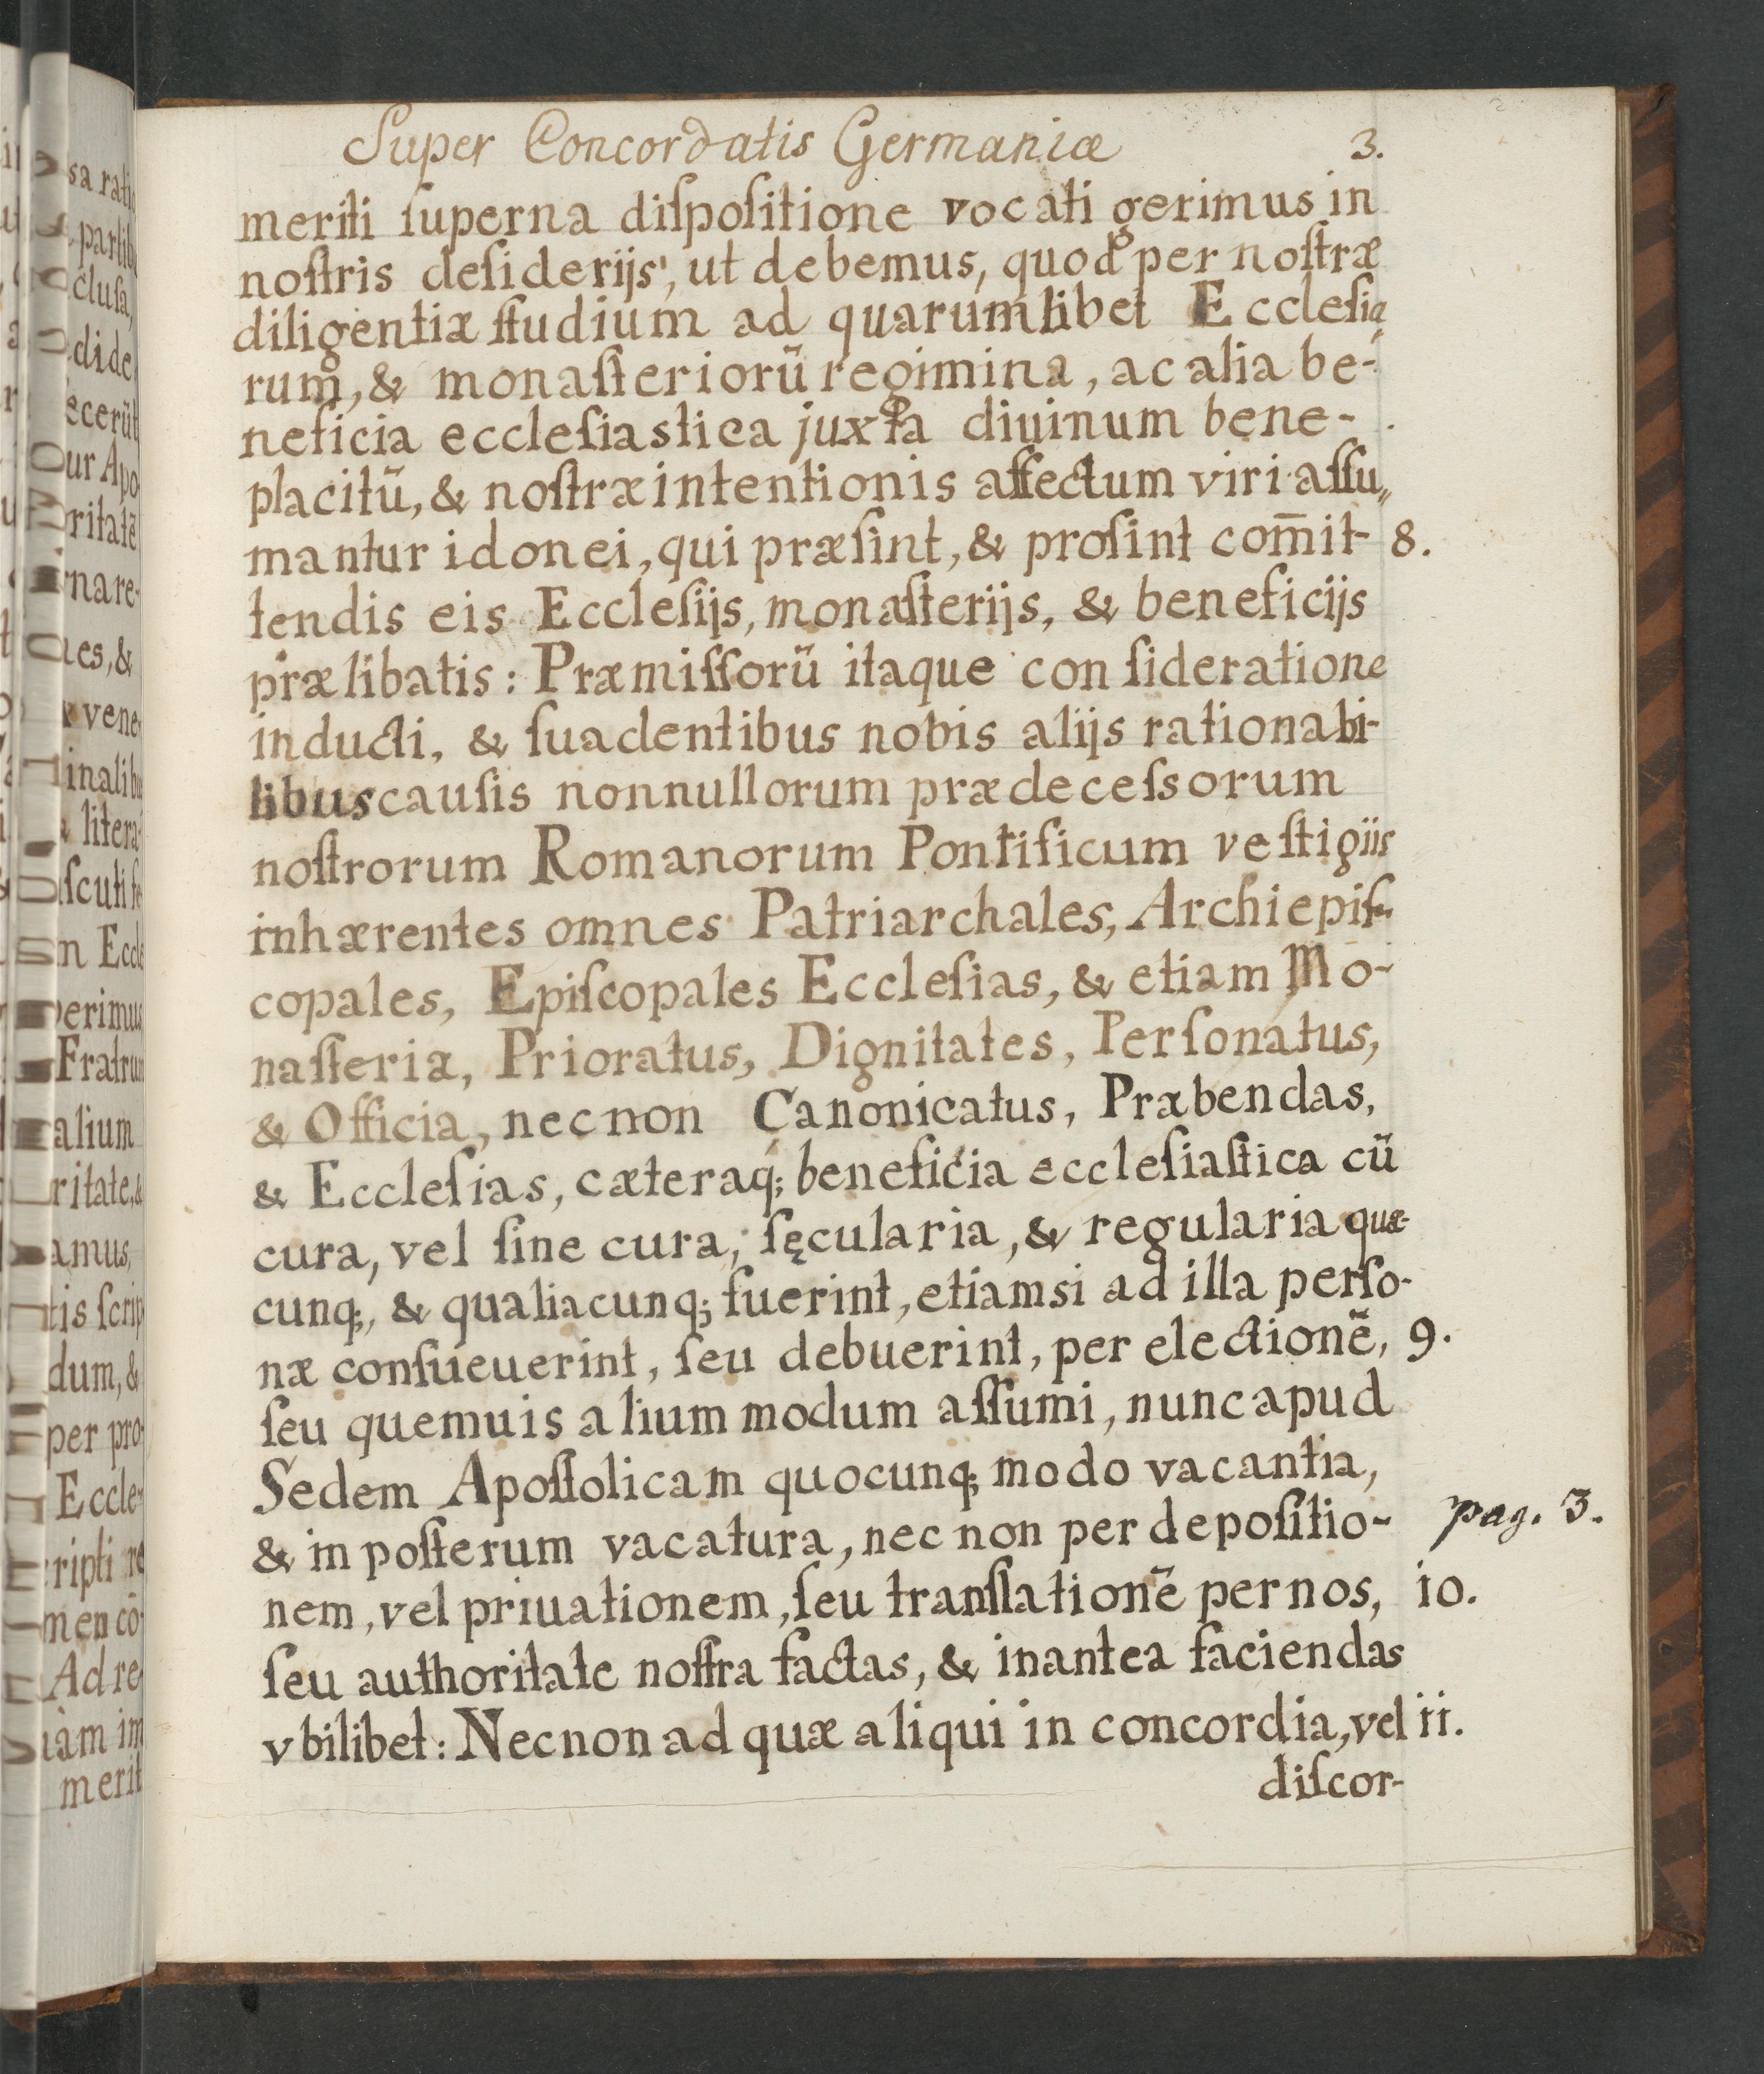 Super Concordatis Germaniæ 3.
meriti ſuperna diſpoſitione vocati gerimus in
noſtris deſiderijs, ut debemus, quod per noſtræ
diligentiæ ſtudium ad quarumlibet Eccleſia
rum, & monaſteriorū regimina, ac alia be-
neficia eccleſiastica juxta diuinum bene-
placitū, & noſtræ intentionis affectum viri aſſu„
mantur idonei, qui præſint, & proſint com̄it- 8.
tendis eis Eccleſijs, monaſterijs, & beneficijs
prælibatis: Præmiſſorū itaque conſideratione
inducti, & ſuadentibus nobis alijs rationabi-
libus cauſis nonnullorum prædeceſsorum
noſtrorum Romanorum Pontificum veſtigiis
inhærentes omnes Patriarchales, Archiepiſ-
copales, Epiſcopales Eccleſias, & etiam Mo-
naſteria, Prioratus, Dignitates, Perſonatus,
& Officia, necnon Canonicatus, Præbendas,
& Eccleſias, cæteraq; beneficia eccleſiaſtica cū
cura, vel ſine cura, ſęcularia, & regularia quæ-
cunq;, & qualiacunq; fuerint, etiamsi ad illa perſo-
næ conſueuerint, ſeu debuerint, per electionē, 9.
ſeu quemuis alium modum aſſumi, nunc apud
Sedem Apoſtolicam quocunq; modo vacantia,
& in poſterum vacatura, nec non per depoſitio- pag. 3.
nem, vel priuationem, ſeu tranſlationē per nos, io.
ſeu authoritate noſtra factas, & inantea faciendas
vbilibet: Necnon ad quæ aliqui in concordia, vel ii.
diſcor-